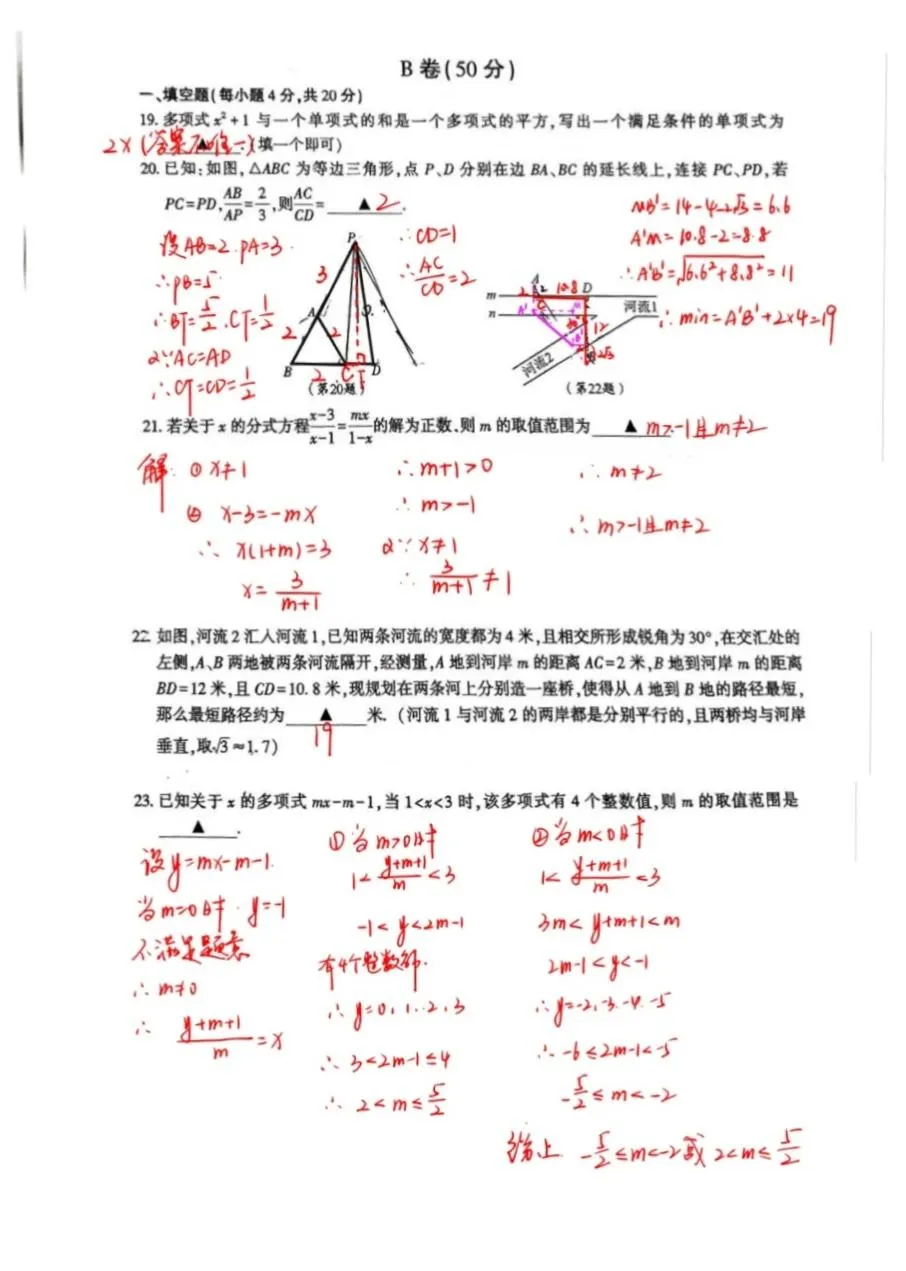 B 卷(50 分)
一、填空题(每小题 4 分,共 20 分)
19. 多项式 x²+1 与一个单项式的和是一个多项式的平方,写出一个满足条件的单项式为
2x (答案不唯一) ▲ .(填一个即可)
20. 已知:如图,△ABC 为等边三角形,点 P、D 分别在边 BA、BC 的延长线上,连接 PC、PD,若
PC=PD, AB/AP=2/3, 则 AC/CD= ▲ 2 .
设AB=2. PA=3.
∴PB=5
∴BT=5/2. CT=1/2
又∵AC=AD
∴CT=CD=1/2
∴CD=1
∴AC/CD=2
P
3
A
2
2
B
2
C
T
D
(第20题)
MB'=14-4-2√3=6.6
A'M=10.8-2=8.8
∴A'B'=√6.6²+8.8²=11
∴min=A'B'+2×4=19
A
2
10.8
D
m
n
C
A'
12
2√3
B
河流1
河流2
(第22题)
21. 若关于 x 的分式方程 x-3/x-1=mx/1-x 的解为正数,则 m 的取值范围为 ▲ m>-1且m≠2
解: ① x≠1
② x-3=-mx
∴ x(1+m)=3
x=3/m+1
∴m+1>0
∴m>-1
又∵x≠1
∴ 3/m+1≠1
∴m≠2
∴m>-1且m≠2
22. 如图,河流 2 汇入河流 1,已知两条河流的宽度都为 4 米,且相交所形成锐角为 30°,在交汇处的
左侧,A、B 两地被两条河流隔开,经测量,A 地到河岸 m 的距离 AC=2 米,B 地到河岸 m 的距离
BD=12 米,且 CD=10.8 米,现规划在两条河上分别造一座桥,使得从 A 地到 B 地的路径最短,
那么最短路径约为 ▲ 米.(河流 1 与河流 2 的两岸都是分别平行的,且两桥均与河岸
19
垂直,取√3≈1.7)
23. 已知关于 x 的多项式 mx-m-1,当 1<x<3 时,该多项式有 4 个整数值,则 m 的取值范围是
▲ .
设y=mx-m-1.
当m=0时. y=-1
不满足题意
∴m≠0
∴ y+m+1/m=x
①当m>0时
1<y+m+1/m<3
-1<y<2m-1
有4个整数解.
∴y=0, 1. 2, 3
∴3<2m-1≤4
∴2<m≤5/2
②当m<0时
1<y+m+1/m<3
3m<y+m+1<m
2m-1<y<-1
∴y=-2, -3. -4. -5
∴-6≤2m-1<-5
-5/2≤m<-2
综上 -5/2≤m<-2或2<m≤5/2